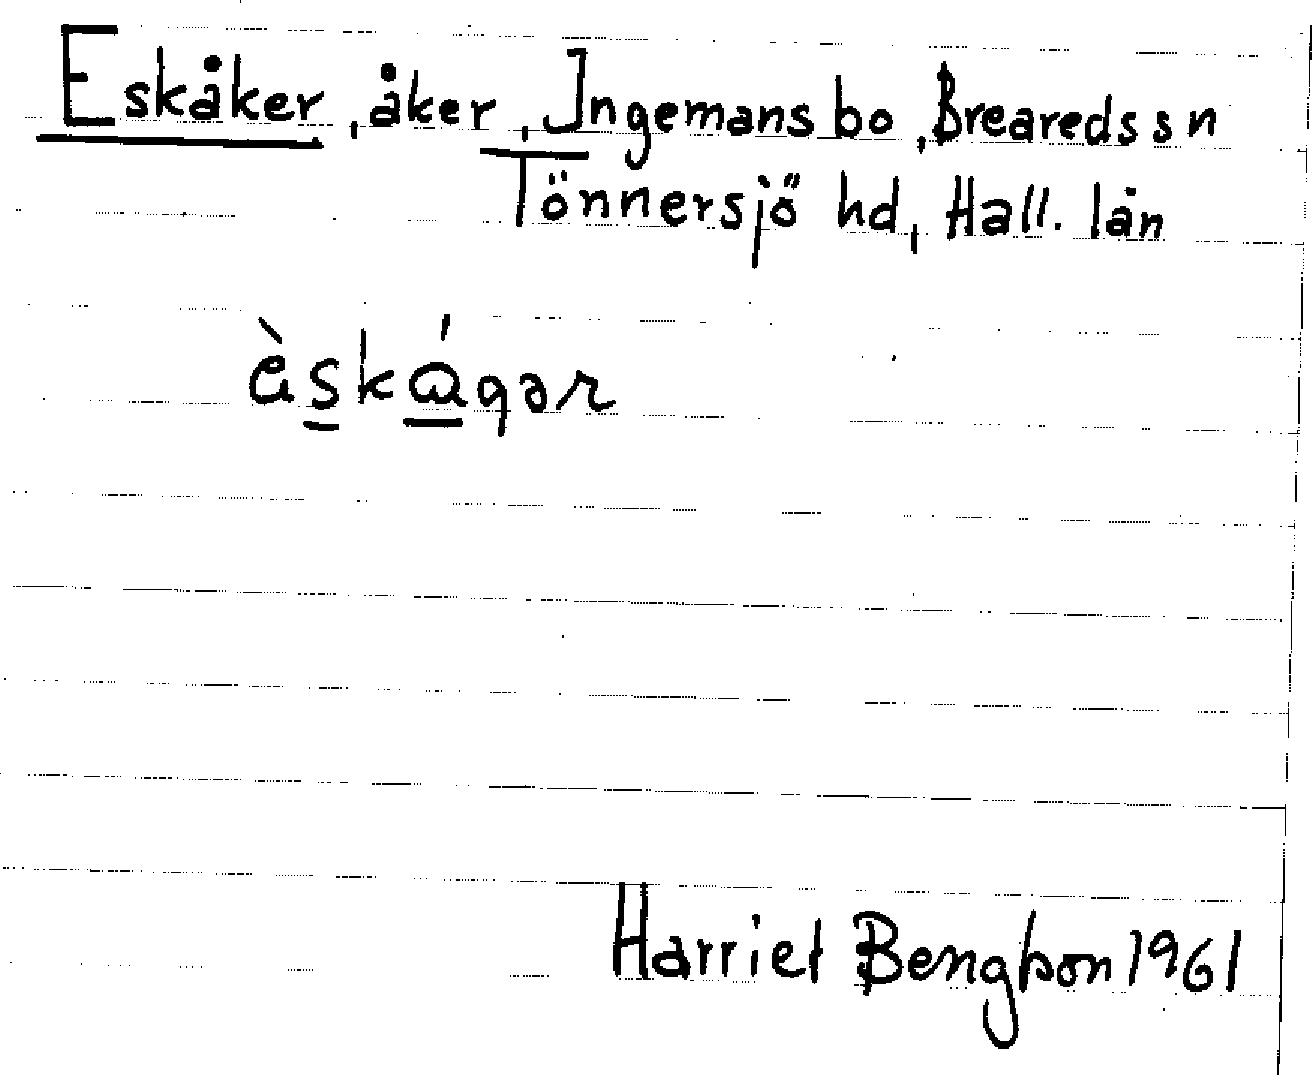 Eskåker, åker, Ingemansbo, Breareds sn
Tönnersjö hd, Hall. län
èskágər
Harriet Bengtson 1961